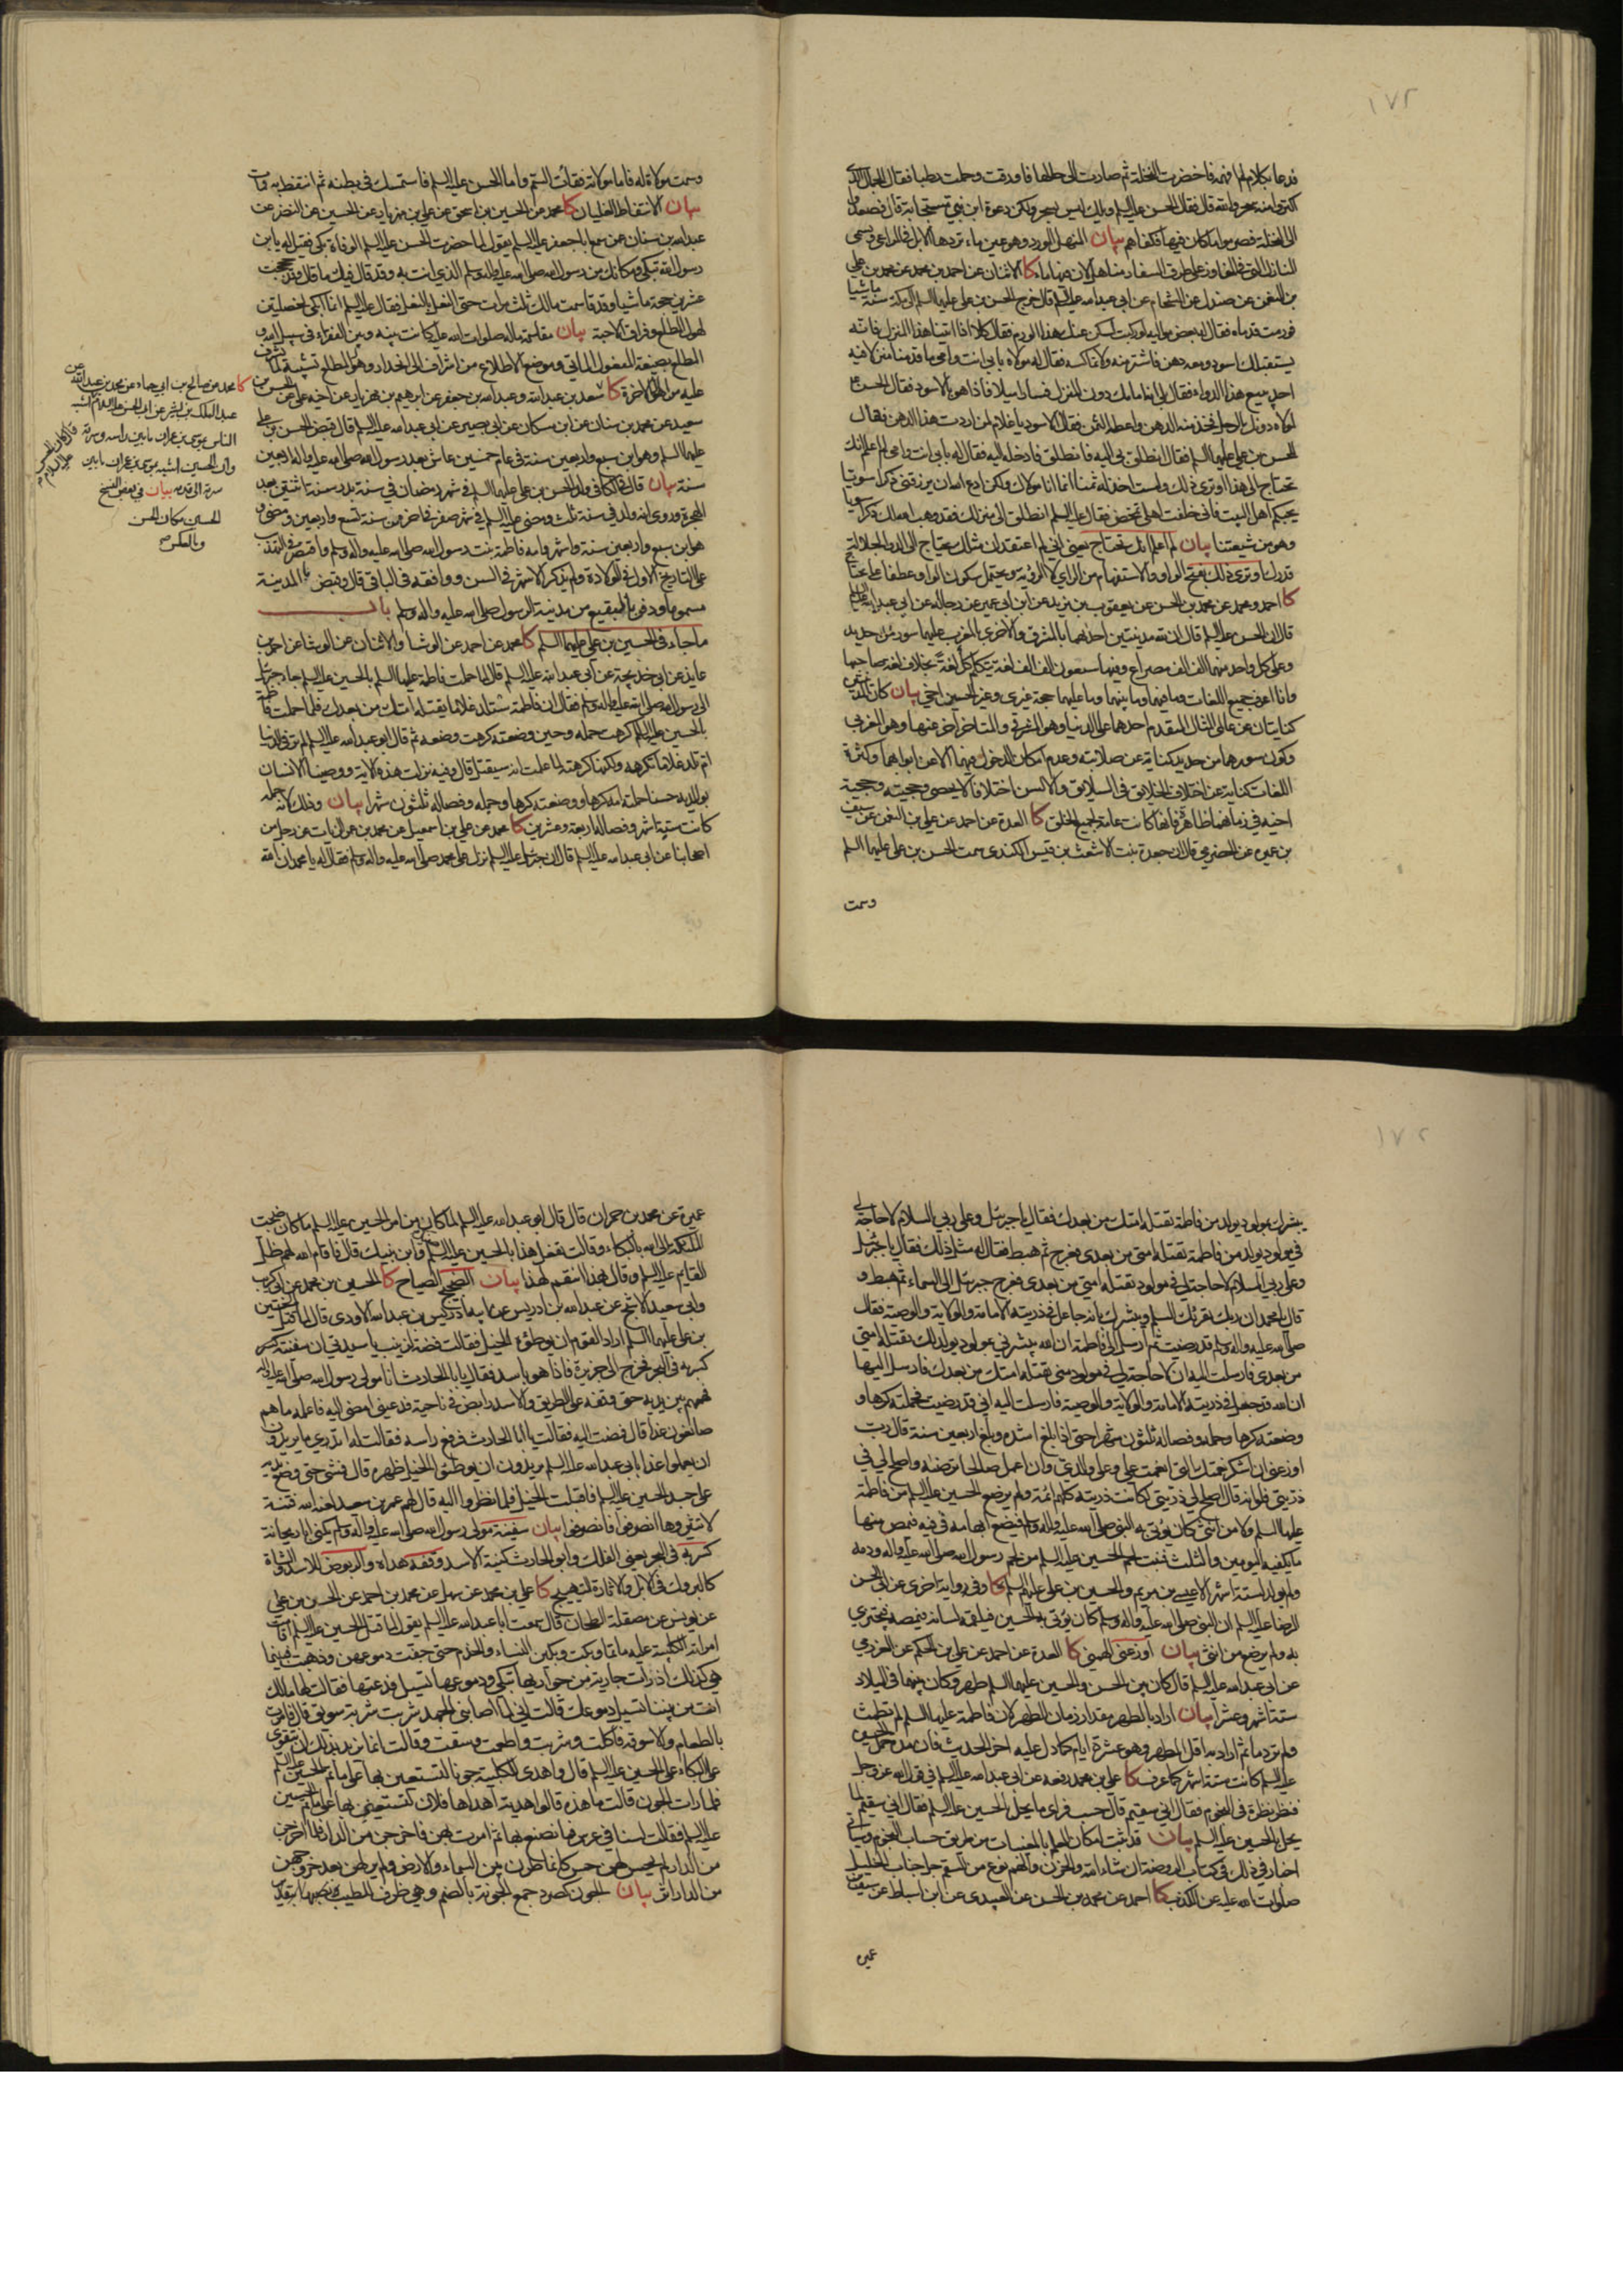 ١٧٢
فدعا بكلام لم افهمه فاخضرت النخلة ثم صارت الى حالها فاورقت وحملت رطبا فقال الجمال الذي
اكتروا منه سحر والله قال فقال الحسن عليه السلم ويلك ليس بسحر ولكن دعوة ابن نبي مستجابة قال فصعدوا
الى النخلة فصرموا ما كان فيها فكفاهم بيان المنهل المورد وهو عين ماء ترده الابل في المراعي وتسمى
المنازل التي في المفاوز على طرق السفار مناهل لان فيها ماء كا الاثنان عن احمد بن محمد عن محمد بن علي
بن النعمن عن صندل عن الشحام عن ابي عبدالله عليه السلم قال خرج الحسن بن علي عليهما السلم الى مكة سنة ماشيا
فورمت قدماه فقال له بعض مواليه لو ركبت لسكن عنك هذا الورم فقال كلا اذا اتينا هذا المنزل فانه
يستقبلك اسود ومعه دهن فاشتر منه ولا تماكسه فقال له مولاه بابي انت وامي ما قدمنا منزلا فيه
احد يبيع هذا الدواء فقال بلى انه امامك دون المنزل فسارا ميلا فاذا هو بالاسود فقال الحسن ع
لمولاه دونك الرجل فخذ منه الدهن واعطه الثمن فقال الاسود يا غلام لمن اردت هذا الدهن فقال
للحسن بن علي عليهما السلم فقال انطلق بي اليه فانطلق فادخله اليه فقال له بابي انت وامي لم اعلم انك
تحتاج الى هذا او ترى ذلك ولست اخذ له ثمنا انما انا مولاك ولكن ادع الله ان يرزقني ذكرا سويا
يحبكم اهل البيت فاني خلفت اهلي تمخض فقال عليه السلم انطلق الى منزلك فقد وهب الله لك ذكرا سويا
وهو من شيعتنا بيان لم اعلم انك تحتاج يعني اني لم اعتقد ان مثلك يحتاج الى الدواء لجلالة
قدرك او ترى ذلك بفتح الواو والاستفهام من الراي لا الرؤية ويحتمل سكون الواو عطفا على تحتاج
كا احمد ومحمد عن محمد بن الحسن عن يعقوب بن يزيد عن ابن ابي عمير عن رجاله عن ابي عبدالله عليه السلم
قال ان الحسن عليه السلم قال ان لله مدينتين احديهما بالمشرق والاخرى بالمغرب عليهما سور من حديد
وعلى كل واحد منهما الف الف مصراع وفيها سبعون الف الف لغة يتكلم كل لغة بخلاف لغة صاحبها
وانا اعرف جميع اللغات وما فيهما وما بينهما وما عليهما حجة غيري وغير الحسين اخي بيان كان المدينتين
كنايتان عن عالمي المثال المتقدم احدهما على الدنيا وهو الشرقي والمتاخر اخر عنها وهو الغربي
وكون سورهما من حديد كناية عن صلابته وعدم امكان الدخول فيهما الا عن ابوابهما وكثرة
اللغات كناية عن اختلاف الخلايق في السلايق والالسن اختلافا لا يحصى وحجيته وحجية
اخيه في زمانهما ظاهرة فانها كانت عامة لجميع الخلق كا العدة عن احمد عن علي بن النعمن عن سيف
بن عميرة عن الحضرمي قال ان جعدة بنت الاشعث بن قيس الكندي سمت الحسن بن علي عليهما السلم
وسمت
وسمت مولاة له فاما مولاته فقاءت السم واما الحسن عليه السلم فاستمسك في بطنه ثم انتفط به فمات
بيان الانتفاط الغليان كا محمد عن الحسين بن اسحق عن علي بن مهزيار عن الحسين عن النضر عن
عبدالله بن سنان عن من سمع ابا جعفر عليه السلم يقول لما حضرت الحسن عليه السلم الوفاة بكى فقيل له يا بن
رسول الله تبكي ومكانك من رسول الله صلى الله عليه واله وسلم الذي انت به وقد قال فيك ما قال وقد حججت
عشرين حجة ماشيا وقد قاسمت مالك ثلث مرات حتى النعل بالنعل فقال عليه السلم انما ابكي لخصلتين
لهول المطلع وفراق الاحبة بيان مقاسمة ماله صلوات الله عليه كانت بينه وبين الفقراء في سبيل الله و
المطلع بصيغة المفعول الماتي وموضع الاطلاع من اشراف الى انحدار وهول المطلع تشبيه لما يشرف
عليه من اهوال الاخرة كا سعد بن عبدالله وعبدالله بن جعفر عن ابرهيم بن مهزيار عن اخيه علي عن الحسن بن
سعيد عن محمد بن سنان عن ابن مسكان عن ابي بصير عن ابي عبدالله عليه السلم قال قبض الحسن بن علي
عليهما السلم وهو ابن سبع واربعين سنة في عام خمسين عاش بعد رسول الله صلى الله عليه واله اربعين
سنة بيان قال في الكافي ولد الحسن بن علي عليهما السلم في شهر رمضان في سنة بدر سنة اثنتين بعد
الهجرة وروي انه ولد في سنة ثلث ومضى عليه السلم في شهر صفر في اخره من سنة تسع واربعين ومضى و
هو ابن سبع واربعين سنة واشهر وامه فاطمة بنت رسول الله صلى الله عليه واله وسلم واقتصر في التهذيب
على التاريخ الاول في الولادة ولم يذكر الاشهر في السن ووافقه في الباقي قال وقبض بالمدينة
مسموما ودفن بالبقيع من مدينة الرسول صلى الله عليه واله وسلم باب
ما جاء في الحسين بن علي عليهما السلم كا محمد عن احمد عن الوشا والاثنان عن الوشا عن احمد بن
عايذ عن ابي خديجة عن ابي عبدالله عليه السلم قال لما حملت فاطمة عليها السلم بالحسين عليه السلم جاء جبرئيل
الى رسول الله صلى الله عليه واله وسلم فقال ان فاطمة ستلد غلاما يقتله امتك من بعدك فلما حملت فاطمة
بالحسين عليه السلم كرهت حمله وحين وضعته كرهت وضعه ثم قال ابو عبدالله عليه السلم لم تر في الدنيا
ام تلد غلاما تكرهه ولكنها كرهته لما علمت انه سيقتل قال وفيه نزلت هذه الاية ووصينا الانسان
بوالديه حسنا حملته امه كرها ووضعته كرها وحمله وفصاله ثلثون شهرا بيان وذلك لان حمله
كانت ستة اشهر وفصاله اربعة وعشرين كا محمد عن علي بن اسمعيل عن محمد بن عمرو الزيات عن رجل من
اصحابنا عن ابي عبدالله عليه السلم قال ان جبرئيل عليه السلم نزل على محمد صلى الله عليه واله وسلم فقال له يا محمد ان الله
كا محمد عن صالح بن ابي حماد عن محمد بن عبدالله عن
عبد الملك بن بشير عن ابي الحسن عليه السلام
قال كان الحسن عليه السلام اشبه
الناس بموسى بن عمران ما بين راسه وسرته
وان الحسين اشبه بموسى بن عمران ما بين
سرته الى قدمه بيان في بعض النسخ
الحسين مكان الحسن
وبالعكس
١٧٢
يبشرك بمولود يولد من فاطمة تقتله امتك من بعدك فقال يا جبرئيل وعلى ربي السلام لا حاجة لي
في مولود يولد من فاطمة تقتله امتي من بعدي فعرج ثم هبط فقال له مثل ذلك فقال يا جبرئيل
وعلى ربي السلام لا حاجة لي في مولود تقتله امتي من بعدي فعرج جبرئيل الى السماء ثم هبط و
قال يا محمد ان ربك يقرئك السلم ويبشرك بانه جاعل في ذريته الامامة والولاية والوصية فقال
صلى الله عليه واله وسلم قد رضيت ثم ارسل الى فاطمة ان الله يبشرني بمولود يولد لك تقتله امتي
من بعدي فارسلت اليه ان لا حاجة لي في مولود مني تقتله امتك من بعدك فارسل اليها
ان الله قد جعل في ذريته الامامة والولاية والوصية فارسلت اليه اني قد رضيت فحملته كرها و
وضعته كرها وحمله وفصاله ثلثون شهرا حتى اذا بلغ اشده وبلغ اربعين سنة قال رب
اوزعني ان اشكر نعمتك التي انعمت علي وعلى والدي وان اعمل صالحا ترضيه واصلح لي في
ذريتي فلولا انه قال اصلح لي في ذريتي لكانت ذريته كلهم ائمة ولم يرضع الحسين عليه السلم من فاطمة
عليها السلم ولا من انثى كان يؤتى به النبي صلى الله عليه واله وسلم فيضع ابهامه في فيه فيمص منها
ما يكفيه اليومين والثلث فنبت لحم الحسين عليه السلم من لحم رسول الله صلى الله عليه واله ودمه
ولم يولد لستة اشهر الا عيسى بن مريم والحسين بن علي عليهم السلم كا وفي رواية اخرى عن ابي الحسن
الرضا عليه السلم ان النبي صلى الله عليه واله وسلم كان يؤتى به الحسين فيلقمه لسانه فيمصه فيجتزي
به ولم يرضع من انثى بيان اوزعني الهمني كا العدة عن احمد عن علي بن الحكم عن العزرمي
عن ابي عبدالله عليه السلم قال كان بين الحسن والحسين عليهما السلم طهر وكان بينهما في الميلاد
ستة اشهر وعشرا بيان اراد بالطهر مقدار زمان الطهر لان فاطمة عليها السلم لم تطمث
ولم تر دما ثم اراد به اقل الطهر وهو عشرة ايام كما دل عليه اخر الحديث فان مدة حمل الحسين
عليه السلم كانت ستة اشهر كما عرفت كا علي بن محمد رفعه عن ابي عبدالله عليه السلم في قول الله عز وجل
فنظر نظرة في النجوم فقال اني سقيم قال حسب فراى ما يحل بالحسين عليه السلم فقال اني سقيم لما
يحل بالحسين عليه السلم بيان قد ثبت امكان العلم بالمغيبات من طريق حساب النجوم وسياتي
اخبار في ذلك في كتاب الروضة ان شاء الله والحزن والهم نوع من السقم جل جناب الخليل
صلوات الله عليه عن الكذب كا احمد عن محمد بن الحسن عن العبيدي عن ابن اسباط عن سيف بن
عميرة
عميرة عن محمد بن حمران قال قال ابو عبدالله عليه السلم لما كان من امر الحسين عليه السلم ما كان ضجت
الملئكة الى الله بالبكاء وقالت يفعل هذا بالحسين صفيك وابن نبيك قال فاقام الله لهم ظل
القايم عليه السلم وقال بهذا انتقم لهذا بيان الضجيج الصياح كا الحسين بن محمد عن ابي كريب
وابي سعيد الاشج عن عبدالله بن ادريس عن ابيه ادريس بن عبدالله الاودي قال لما قتل الحسين
بن علي عليهما السلم اراد القوم ان يوطئوه الخيل فقالت فضة لزينب يا سيدتي ان سفينة كسر
كسر به في البحر فخرج الى جزيرة فاذا هو باسد فقال يا ابا الحارث انا مولى رسول الله صلى الله عليه واله
فهمهم بين يديه حتى وقفه على الطريق والاسد رابض في ناحية فدعيني امضي اليه فاعلمه ما هم
صانعون غدا قال فمضت اليه فقالت يا ابا الحارث فرفع راسه فقالت له اتدري ما يريدون
ان يعملوا غدا بابي عبدالله عليه السلم يريدون ان يوطئوا الخيل ظهره قال فمشى حتى وضع يديه
على جسد الحسين عليه السلم فاقبلت الخيل فلما نظروا اليه قال لهم عمر بن سعد لعنه الله فتنة
لا تثيروها انصرفوا فانصرفوا بيان سفينة مولى رسول الله صلى الله عليه واله وسلم يكنى ابا ريحانة
كسر به في البحر يعني الفلك وابو الحارث كنية الاسد ووقفه هداه والربوض للاسد والشاة
كالبروك في الابل والاثارة التهييج كا علي بن محمد عن سهل عن محمد بن احمد عن الحسن بن علي
عن يونس عن مصقلة الطحان قال سمعت ابا عبدالله عليه السلم يقول لما قتل الحسين عليه السلم اقامت
امراته الكلبية عليه ماتما وبكت وبكين النساء والخدم حتى جفت دموعهن وذهبت فبينما
هي كذلك اذ رات جارية من جواريها تبكي ودموعها تسيل فدعتها فقالت لها ما لك
انت من بيننا تسيل دموعك قالت اني لما اصابني الجهد شربت شربة سويق قال فامرت
بالطعام والاسوقة فاكلت وشربت واطعمت وسقت وقالت انما نريد بذلك ان نتقوى
على البكاء على الحسين عليه السلم قال واهدى الى الكلبية جونا لتستعين بها على ماتم الحسين عليه السلم
فلما رات الجون قالت ما هذه قالوا هدية اهداها فلان لتستعيني بها على ماتم الحسين
عليه السلم فقالت لسنا في عرس فما نصنع بها ثم امرت بهن فاخرجن من الدار فلما اخرجن
من الدار لم يحس لهن حس كانما طرن بين السماء والارض ولم ير لهن بعد خروجهن
من الدار اثر بيان الجون كصرد جمع الجونة بالضم وهي ظرف للطيب